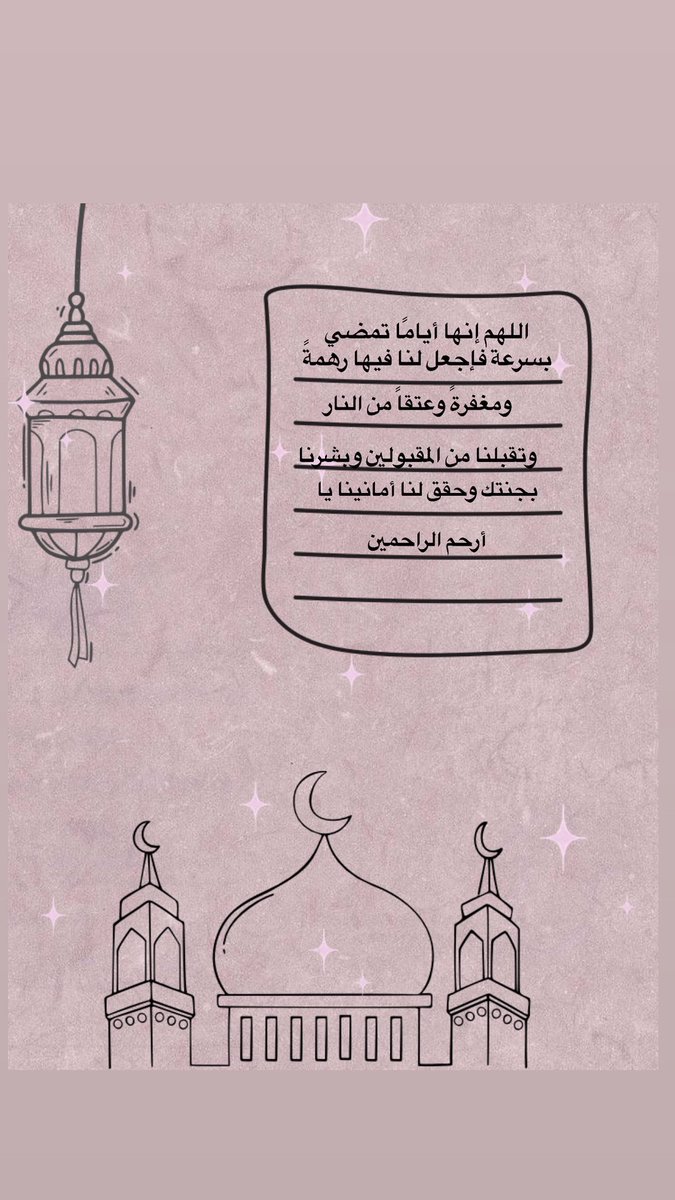 اللهم إنها أيامًا تمضي
بسرعة فإجعل لنا فيها رهمةً
ومغفرةً وعتقاً من النار
وتقبلنا من المقبولين وبشرنا
بجنتك وحقق لنا أمانينا يا
أرحم الراحمين